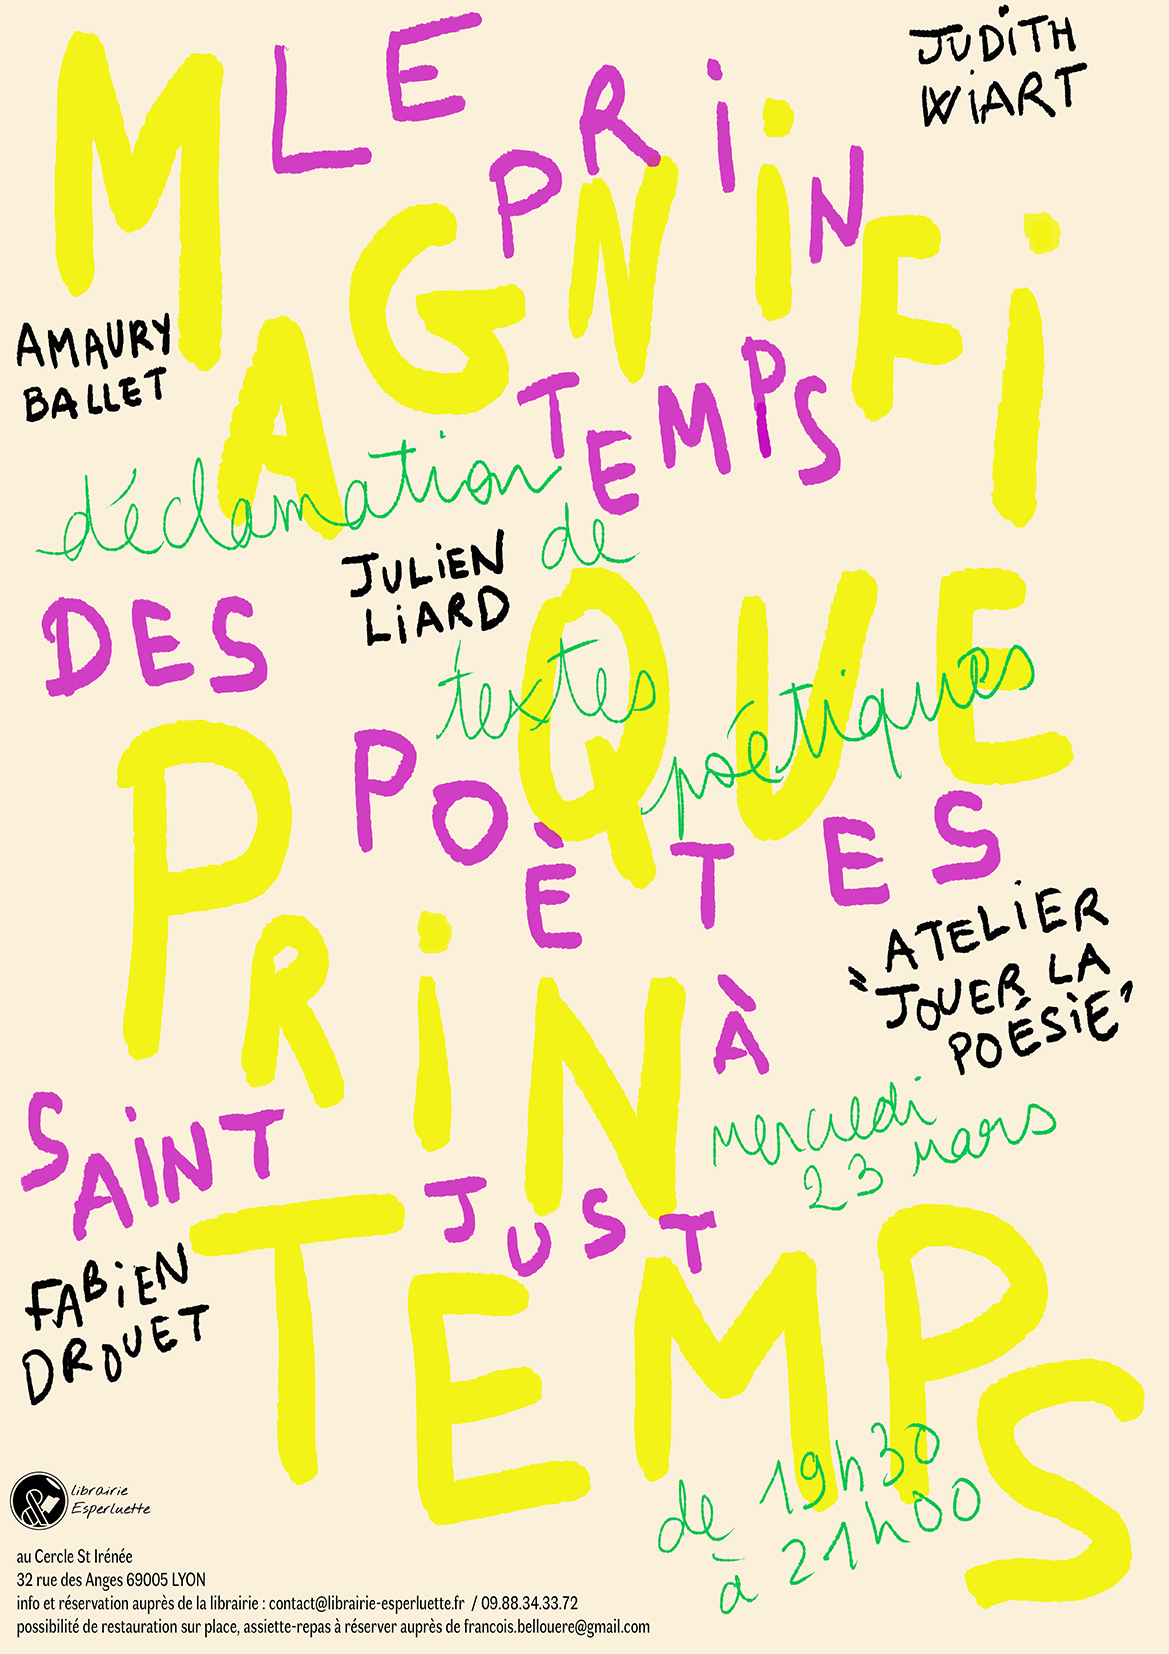 MAGNiFi
QUE
PRiN
TEMPS
LE
PRiN
TEMPS
DES
POÈTES
À
SAiNT
JUST
JUDiTH
WiART
AMAURY
BALLET
déclamation
de
JULiEN
LiARD
textes
poétiques
ATELiER
"JOUER LA
POÉSiE"
mercredi
23 mars
FABiEN
DROUET
de 19h30
à 21h00
&
librairie
Esperluette
au Cercle St Irénée
32 rue des Anges 69005 LYON
info et réservation auprès de la librairie : contact@librairie-esperluette.fr / 09.88.34.33.72
possibilité de restauration sur place, assiette-repas à réserver auprès de francois.bellouere@gmail.com